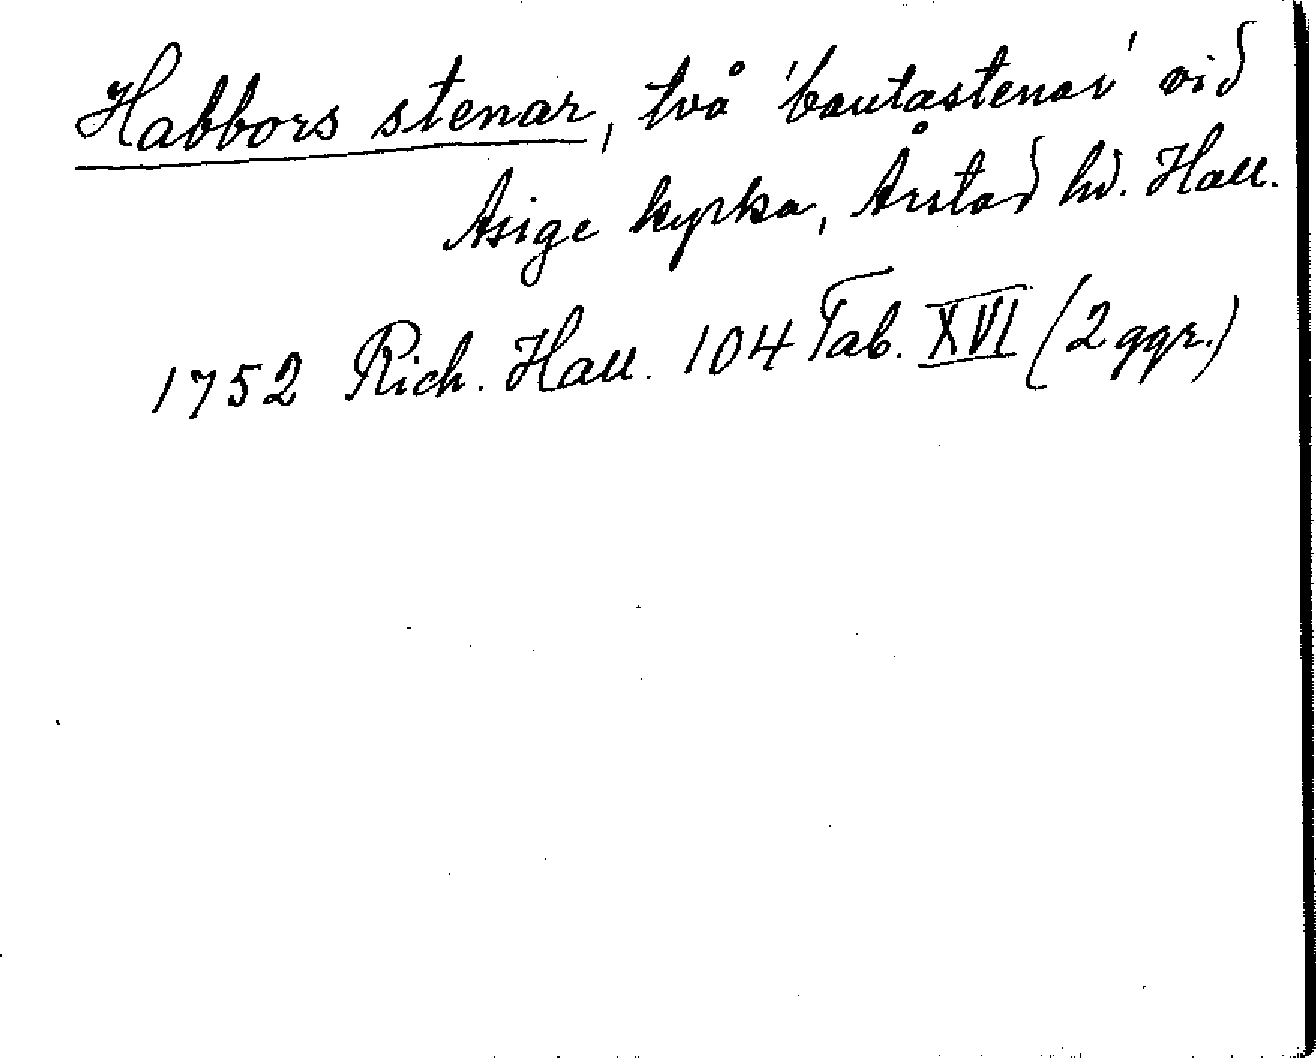 Habbors stenar, två 'bautastenar' vid
Asige kyrka, Årstad hd. Hall.
1752 Rich. Hall. 104 Tab. XVI (2 ggr.)